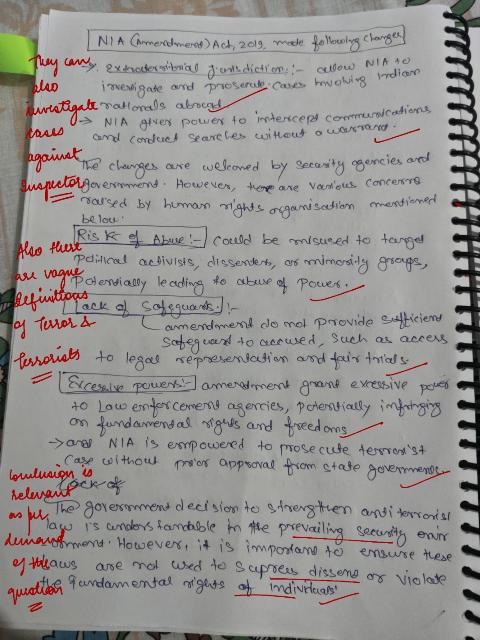 NIA (Amendment) Act, 2019, made following changes
They can also investigate cases against Inspector
→ extraterritorial jurisdiction:- allow NIA to
investigate and prosecute cases involving Indian
nationals abroad
→ NIA given power to intercept communications
and conduct searches without a warrant.
The changes are welcomed by security agencies and
government. However, there are various concerns
raised by human rights organisation mentioned
below.
Also there are vague definitions of Terror & Terrorists
Risk of Abuse:- could be misused to target
political activists, dissenders, or minority groups,
potentially leading to abuse of power.
Lack of Safeguards:-
amendment do not provide sufficient
safeguard to accused, such as access
to legal representation and fair trials.
Excessive powers:- amendment grant excessive power
to Law enforcement agencies, potentially infringing
on fundamental rights and freedoms
→ and NIA is empowered to prosecute terrorist
case without prior approval from state governments.
Lack of
Conclusion is relevant as per demand of the question
The government decision to strengthen anti terrorist
law is understandable in the prevailing security envir
onment. However, it is important to ensure these
laws are not used to supress dissens or violate
the fundamental rights of individuals.